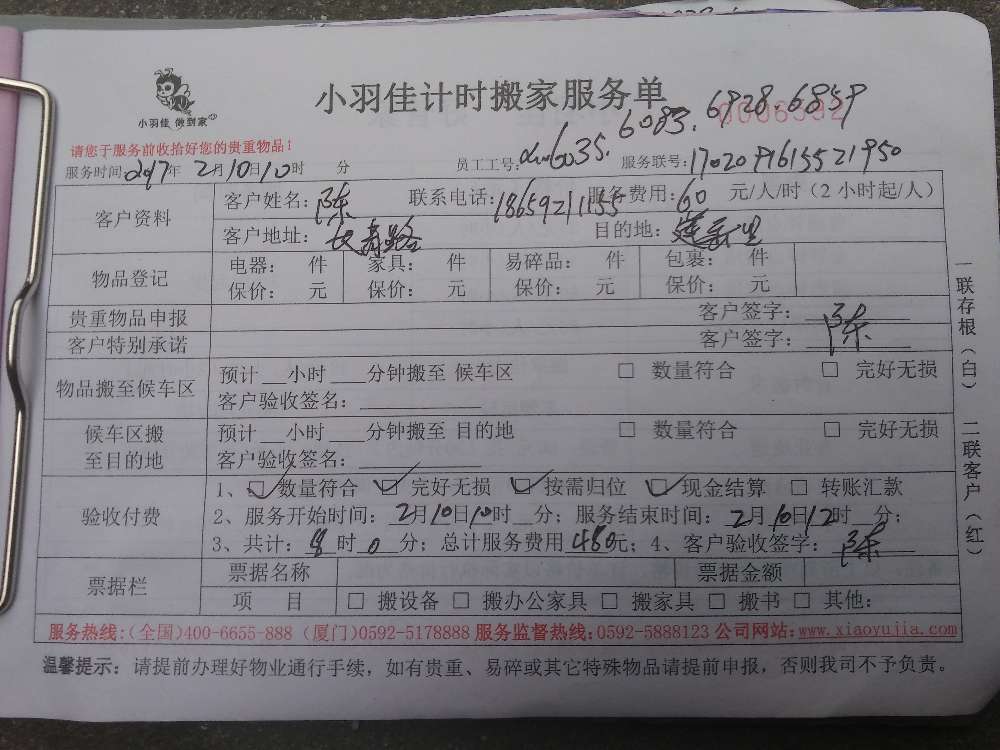 小羽佳 做到家
小羽佳计时搬家服务单
请您于服务前收拾好您的贵重物品！
6083. 6928. 6859
服务时间：2017年 2月10日10时 分 员工工号： 6035. 服务联号：
客户资料 客户姓名：陈 联系电话：18659211155 服务费用：60 元/人/时（2小时起/人）
客户地址：长青路 目的地：建新里
物品登记 电器： 件 家具： 件 易碎品： 件 包裹： 件
保价： 元 保价： 元 保价： 元 保价： 元
贵重物品申报 客户签字：
客户特别承诺 客户签字：陈
物品搬至候车区 预计__小时___分钟搬至 候车区 □ 数量符合 □ 完好无损
客户验收签名：
候车区搬至目的地 预计__小时___分钟搬至 目的地 □ 数量符合 □ 完好无损
客户验收签名：
验收付费 1、☑数量符合 ☑完好无损 ☑按需归位 ☑现金结算 □ 转账汇款
2、服务开始时间：2月10日10时__分；服务结束时间：2月10日12时__分；
3、共计：8时0分；总计服务费用480元；4、客户验收签字：陈
票据栏 票据名称 票据金额
项 目 □ 搬设备 □ 搬办公家具 □ 搬家具 □ 搬书 □ 其他：
服务热线：（全国）400-6655-888 （厦门）0592-5178888 服务监督热线：0592-5888123 公司网站：www.xiaoyujia.com
温馨提示：请提前办理好物业通行手续，如有贵重、易碎或其它特殊物品请提前申报，否则我司不予负责。
一联存根（白） 二联客户（红）